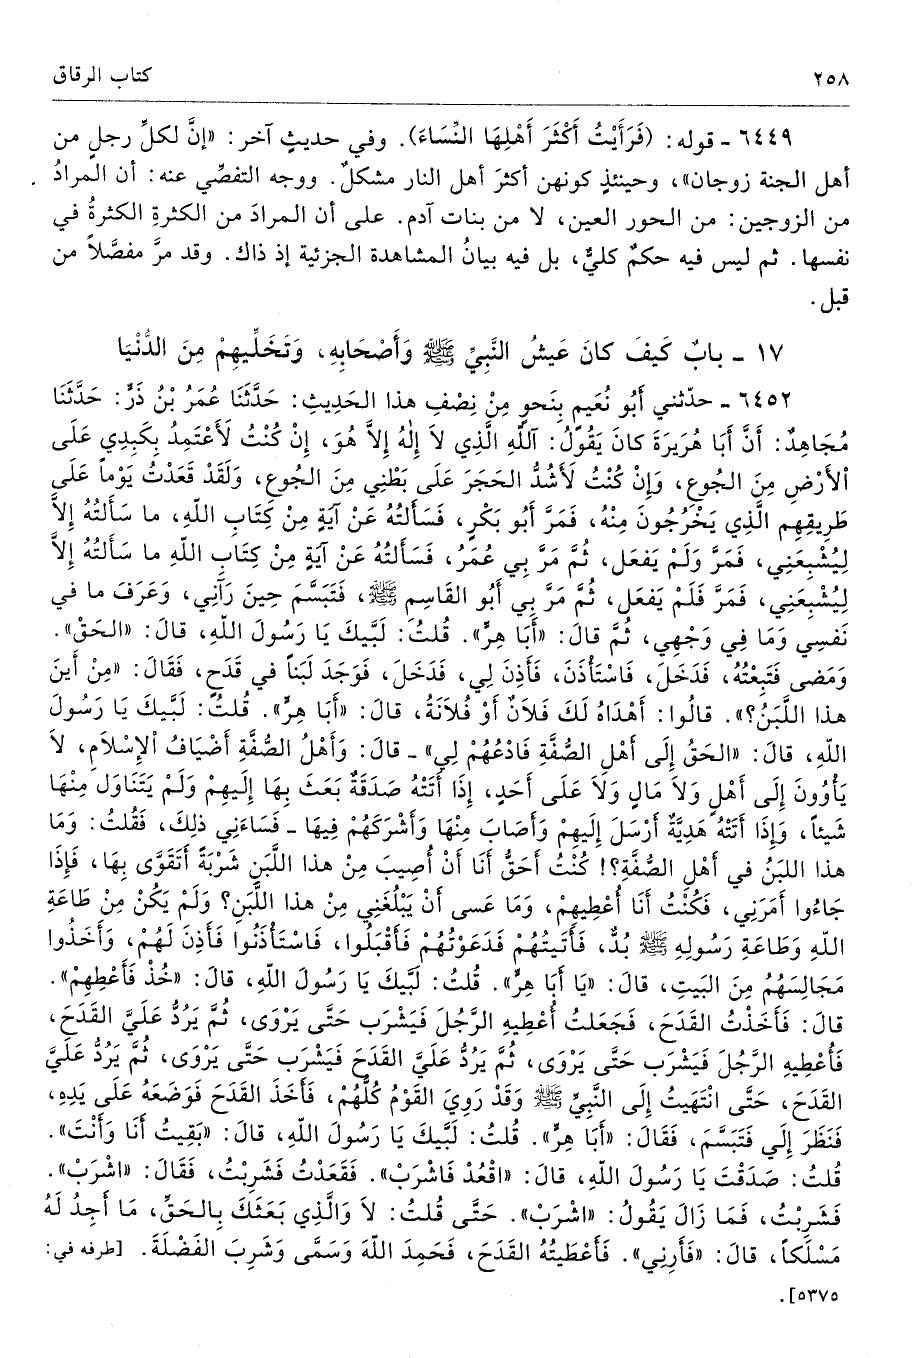 ٢٥٨ كتاب الرقاق
٦٤٤٩ ـ قوله: (فَرَأَيْتُ أَكْثَرَ أَهْلِهَا النِّسَاءَ). وفي حديثٍ آخر: «إنَّ لكلِّ رجلٍ من
أهل الجنة زوجان»، وحينئذٍ كونهن أكثرَ أهل النار مشكلٌ. ووجه التفصِّي عنه: أن المرادُ
من الزوجين: من الحور العين، لا من بنات آدم. على أن المرادَ من الكثرةِ الكثرةُ في
نفسها. ثم ليس فيه حكمٌ كليٌّ، بل فيه بيانُ المشاهدة الجزئية إذ ذاك. وقد مرَّ مفصَّلاً من
قبل.
١٧ ـ بابٌ كَيفَ كانَ عَيشُ النَّبِيِّ ﷺ وَأَصْحَابِهِ، وَتَخَلِّيهِمْ مِنَ الدُّنْيَا
٦٤٥٢ ـ حدّثني أَبُو نُعَيمٍ بِنَحوٍ مِنْ نِصْفِ هذا الحَدِيثِ: حَدَّثَنَا عُمَرُ بْنُ ذَرٍّ: حَدَّثَنَا
مُجَاهِدٌ: أَنَّ أَبَا هُرَيرَةَ كانَ يَقُولُ: آللّهِ الَّذِي لاَ إِلٰهُ إِلاَّ هُوَ، إِنْ كُنْتُ لَأَعْتَمِدُ بِكَبِدِي عَلَى
الأَرْضِ مِنَ الجُوعِ، وَإِنْ كُنْتُ لَأَشُدُّ الحَجَرَ عَلَى بَطْنِي مِنَ الجُوعِ، وَلَقَدْ قَعَدْتُ يَوْماً عَلَى
طَرِيقِهِمِ الَّذِي يَخْرُجُونَ مِنْهُ، فَمَرَّ أَبُو بَكْرٍ، فَسَأَلتُهُ عَنْ آيَةٍ مِنْ كِتَابِ اللّهِ، ما سَأَلتُهُ إِلاَّ
لِيُشْبِعَنِي، فَمَرَّ وَلَمْ يَفعَل، ثُمَّ مَرَّ بِي عُمَرُ، فَسَأَلتُهُ عَنْ آيَةٍ مِنْ كِتَابِ اللّهِ ما سَأَلتُهُ إِلاَّ
لِيُشْبِعَنِي، فَمَرَّ فَلَمْ يَفعَل، ثُمَّ مَرَّ بِي أَبُو القَاسِمِ ﷺ، فَتَبَسَّمَ حِينَ رَآنِي، وَعَرَفَ ما في
نَفسِي وَمَا فِي وَجْهِي، ثُمَّ قالَ: «أَبَا هِرٍّ». قُلتُ: لَبَّيكَ يَا رَسُولَ اللّهِ، قالَ: «الحَقْ».
وَمَضى فَتَبِعْتُهُ، فَدَخَلَ، فَاسْتَأْذَنَ، فَأَذِنَ لِي، فَدَخَلَ، فَوَجَدَ لَبَناً في قَدَحٍ، فَقَالَ: «مِنْ أَينَ
هذا اللَّبَنُ؟». قالُوا: أَهْدَاهُ لَكَ فُلاَنٌ أَوْ فُلاَنَةُ، قالَ: «أَبَا هِرٍّ». قُلتُ: لَبَّيكَ يَا رَسُولَ
اللّهِ، قالَ: «الحَقْ إِلَى أَهْلِ الصُّفَّةِ فَادْعُهُمْ لِي» ـ قالَ: وَأَهْلُ الصُّفَّةِ أَضْيَافُ الإِسْلاَمِ، لاَ
يَأْوُونَ إِلَى أَهْلٍ وَلاَ مَالٍ وَلاَ عَلَى أَحَدٍ، إِذَا أَتَتْهُ صَدَقَةٌ بَعَثَ بِهَا إِلَيهِمْ وَلَمْ يَتَنَاوَل مِنْهَا
شَيئاً، وَإِذَا أَتَتْهُ هَدِيَّةٌ أَرْسَلَ إِلَيهِمْ وَأَصَابَ مِنْهَا وَأَشْرَكَهُمْ فِيهَا ـ فَسَاءَنِي ذلِكَ، فَقُلتُ: وَمَا
هذا اللبَنُ في أَهْلِ الصُّفَّةِ؟! كُنْتُ أَحَقُّ أَنَا أَنْ أُصِيبَ مِنْ هذا اللَّبَنِ شَرْبَةً أَتَقَوَّى بِهَا، فَإِذَا
جَاءُوا أَمَرَنِي، فَكُنْتُ أَنَا أُعْطِيهِمْ، وَمَا عَسى أَنْ يَبْلُغَنِي مِنْ هذا اللَّبَنِ؟ وَلَمْ يَكُنْ مِنْ طَاعَةِ
اللّهِ وَطَاعَةِ رَسُولِهِ ﷺ بُدٌّ، فَأَتَيتُهُمْ فَدَعَوْتُهُمْ فَأَقْبَلُوا، فَاسْتَأْذَنُوا فَأَذِنَ لَهُمْ، وَأَخَذُوا
مَجَالِسَهُمُ مِنَ البَيتِ، قالَ: «يَا أَبَا هِرٍّ». قُلتُ: لَبَّيكَ يَا رَسُولَ اللّهِ، قالَ: «خُذْ فَأَعْطِهِمْ».
قالَ: فَأَخَذْتُ القَدَحَ، فَجَعَلتُ أُعْطِيهِ الرَّجُلَ فَيَشْرَب حَتَّى يَرْوَى، ثُمَّ يَرُدُّ عَلَيَّ القَدَحَ،
فَأُعْطِيهِ الرَّجُلَ فَيَشْرَب حَتَّى يَرْوَى، ثُمَّ يَرُدُّ عَلَيَّ القَدَحَ فَيَشْرَب حَتَّى يَرْوَى، ثُمَّ يَرُدُّ عَلَيَّ
القَدَحَ، حَتَّى انْتَهَيتُ إِلَى النَّبِيِّ ﷺ وَقَدْ رَوِيَ القَوْمُ كُلُّهُمْ، فَأَخَذَ القَدَحَ فَوَضَعَهُ عَلَى يَدِهِ،
فَنَظَرَ إِلَي فَتَبَسَّمَ، فَقَالَ: «أَبَا هِرٍّ». قُلتُ: لَبَّيكَ يَا رَسُولَ اللّهِ، قالَ: «بَقِيتُ أَنَا وَأَنْتَ».
قُلتُ: صَدَقْتَ يَا رَسُولَ اللّهِ، قالَ: «اقْعُدْ فَاشْرَبْ». فَقَعَدْتُ فَشَرِبْتُ، فَقَالَ: «اشْرَبْ».
فَشَرِبْتُ، فَمَا زَالَ يَقُولُ: «اشْرَبْ». حَتَّى قُلتُ: لاَ وَالَّذِي بَعَثَكَ بِالحَقِّ، مَا أَجِدُ لَهُ
مَسْلَكاً، قالَ: «فَأَرِنِي». فَأَعْطَيتُهُ القَدَحَ، فَحَمِدَ اللّهَ وَسَمَّى وَشَرِبَ الفَضْلَةَ. [طرفه في:
٥٣٧٥].